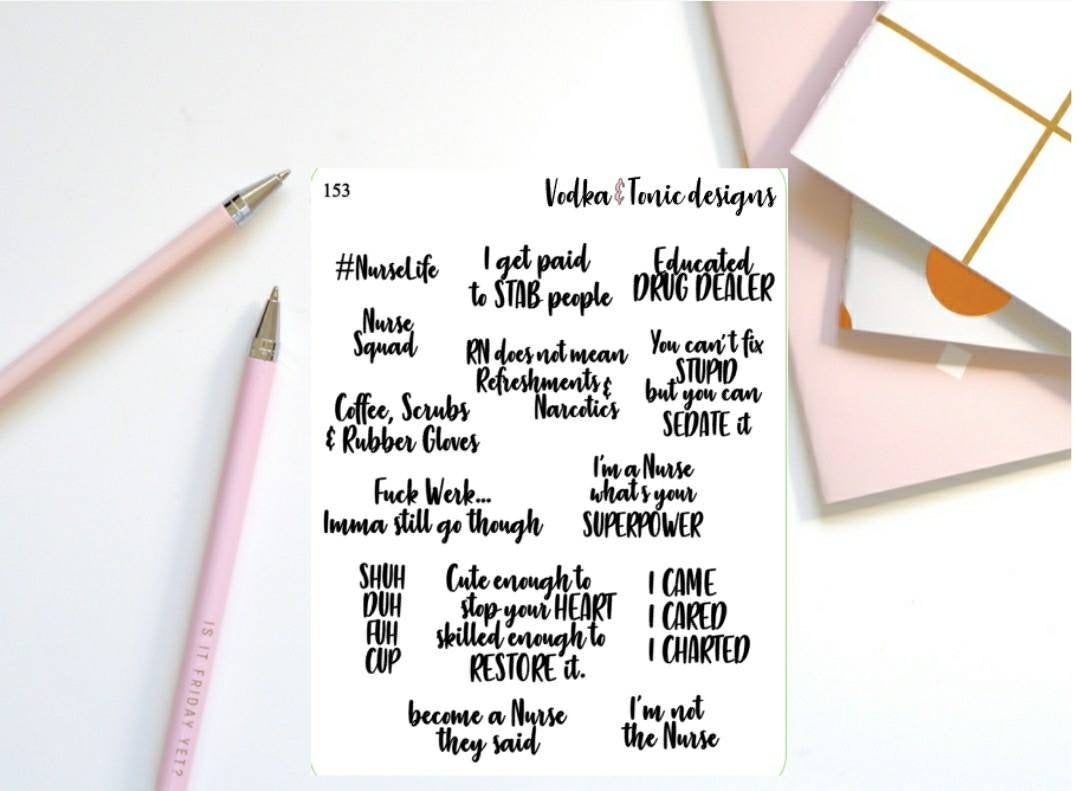 153
Vodka & Tonic designs
#NurseLife
I get paid
to STAB people
Educated
DRUG DEALER
Nurse
Squad
RN does not mean
Refreshments &
Narcotics
You can't fix
STUPID
but you can
SEDATE it
Coffee, Scrubs
& Rubber Gloves
Fuck Werk...
Imma still go though
I'm a Nurse
what's your
SUPERPOWER
SHUH
DUH
FUH
CUP
Cute enough to
stop your HEART
skilled enough to
RESTORE it.
I CAME
I CARED
I CHARTED
become a Nurse
they said
I'm not
the Nurse
IS IT FRIDAY YET?